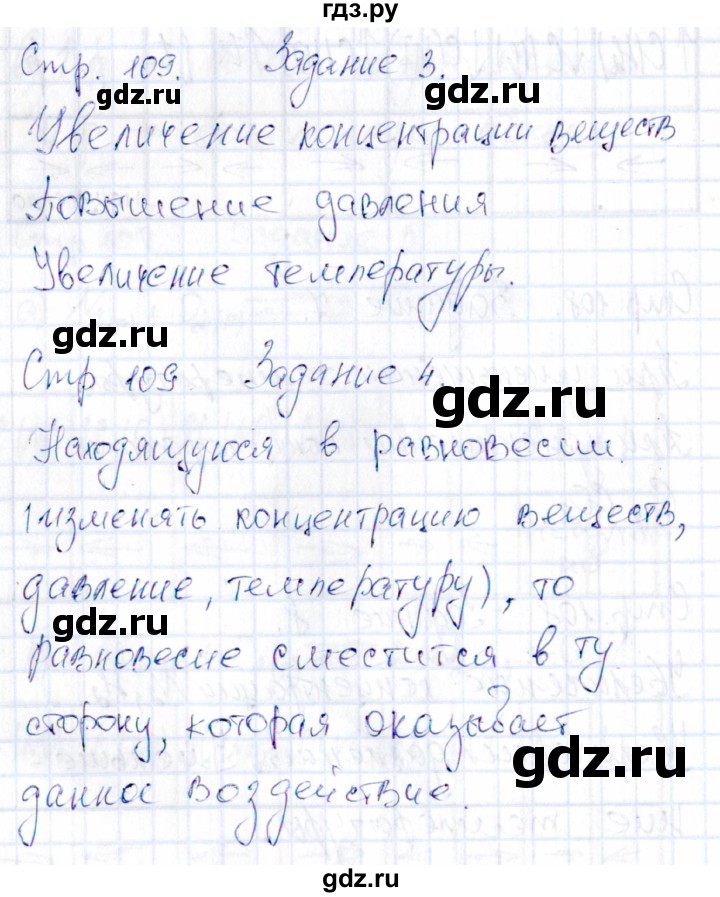 гдз.ру
Стр. 109. Задание 3.
gdz.ru gdz.ru
Увеличение концентрации веществ
Повышение давления
Увеличение температуры.
gdz.ru
Стр 109 Задание 4.
gdz.ru
Находящуюся в равновесии.
(изменять концентрацию веществ,
давление, температуру), то
gdz.ru
равновесие сместится в ту
сторону, которая оказывает
gdz.ru
данное воздействие.
gdz.ru